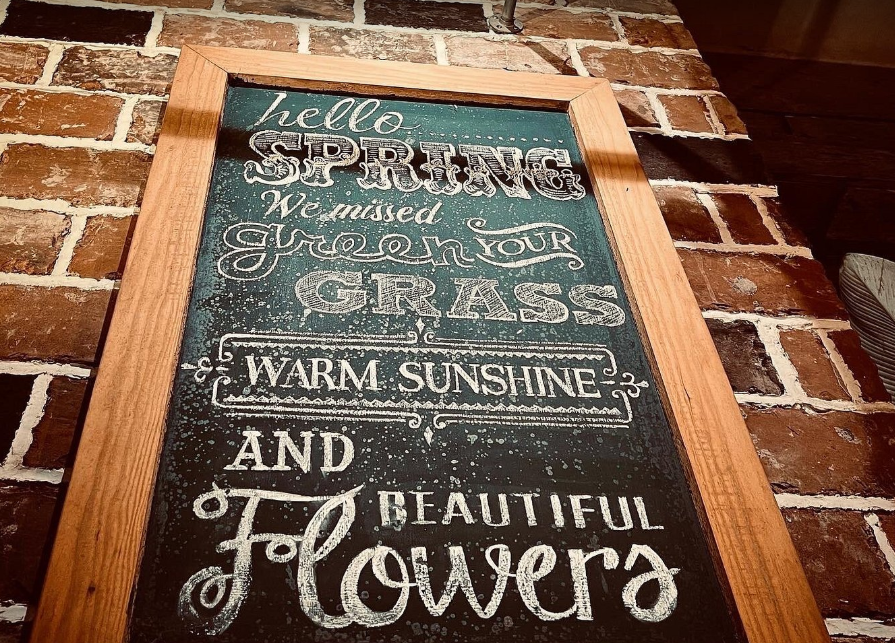 hello
SPRING
We missed
green YOUR
GRASS
WARM SUNSHINE
AND
BEAUTIFUL
Flowers